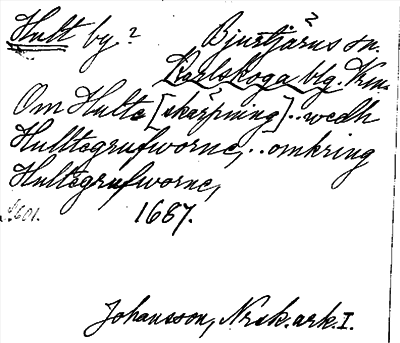 Hult by? Bjurtjärns sn.
Karlskoga blg. Vrm.
Om Hults [skärpning]..wedh
Hulltegrufworne,..omkring
Hultegrufworne,
1687.
Johansson, Nrsk. ark. I.